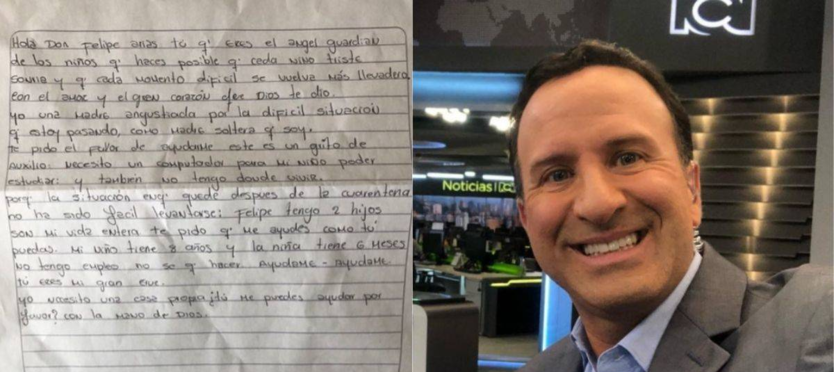 Hola Don Felipe arias tú q' eres el angel guardian
de los niños q' haces posible q' cada niño triste
sonria y q' cada momento dificil se vuelva más llevadero
con el amor y el gran corazón q' Dios te dio.
yo una madre angustiada por la dificil situacion
q' estoy pasando, como madre soltera q' soy.
te pido el favor de ayudarme este es un grito de
auxilio: necesito un computador para mi niño poder
estudiar: y tambien no tengo donde vivir.
porq' la situación enq' quede despues de la cuarentena
no ha sido facil levantarse: Felipe tengo 2 hijos
son mi vida entera te pido q' me ayudes como tú
puedas. mi niño tiene 8 años y la niña tiene 6 meses
no tengo empleo no se q' hacer. Ayudame - ayudame
tú eres mi gran
yo necesito una casa propia ¿tú me puedes ayudar por
favor? con la mano de Dios.
RCN
Noticias RCN